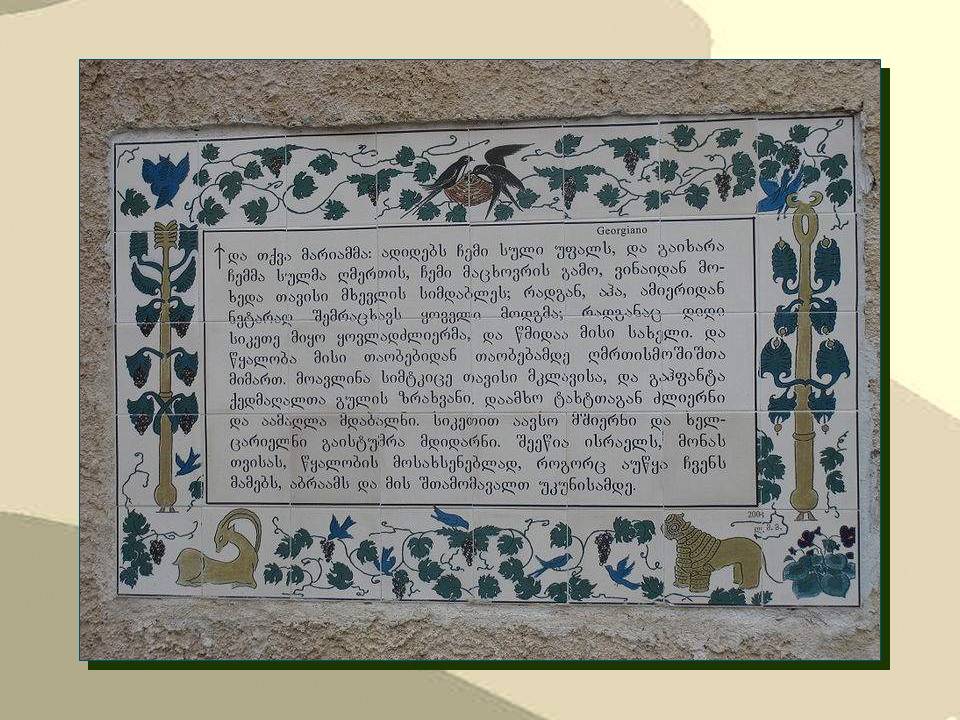 Georgiano
† და თქვა მარიამმა: ადიდებს ჩემი სული უფალს, და გაიხარა
ჩემმა სულმა ღმერთის, ჩემი მაცხოვრის გამო, ვინაიდან მო-
ხედა თავისი მხევლის სიმდაბლეს; რადგან, აჰა, ამიერიდან
ნეტარად შემრაცხავს ყოველი მოდგმა; რადგანაც დიდი
სიკეთე მიყო ყოვლადძლიერმა, და წმიდაა მისი სახელი. და
წყალობა მისი თაობებიდან თაობებამდე ღმრთისმოშიშთა
მიმართ. მოავლინა სიმტკიცე თავისი მკლავისა, და გაჰფანტა
ქედმაღალთა გულის ზრახვანი. დაამხო ტახტთაგან ძლიერნი
და აამაღლა მდაბალნი. სიკეთით აავსო მშიერნი და ხელ-
ცარიელნი გაისტუმრა მდიდარნი. შეეწია ისრაელს, მონას
თვისას, წყალობის მოსახსენებლად, როგორც აუწყა ჩვენს
მამებს, აბრაამს და მის შთამომავალთ უკუნისამდე.
2004